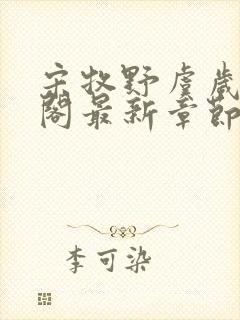 宋牧野虞岁
阁最新章节
李可染